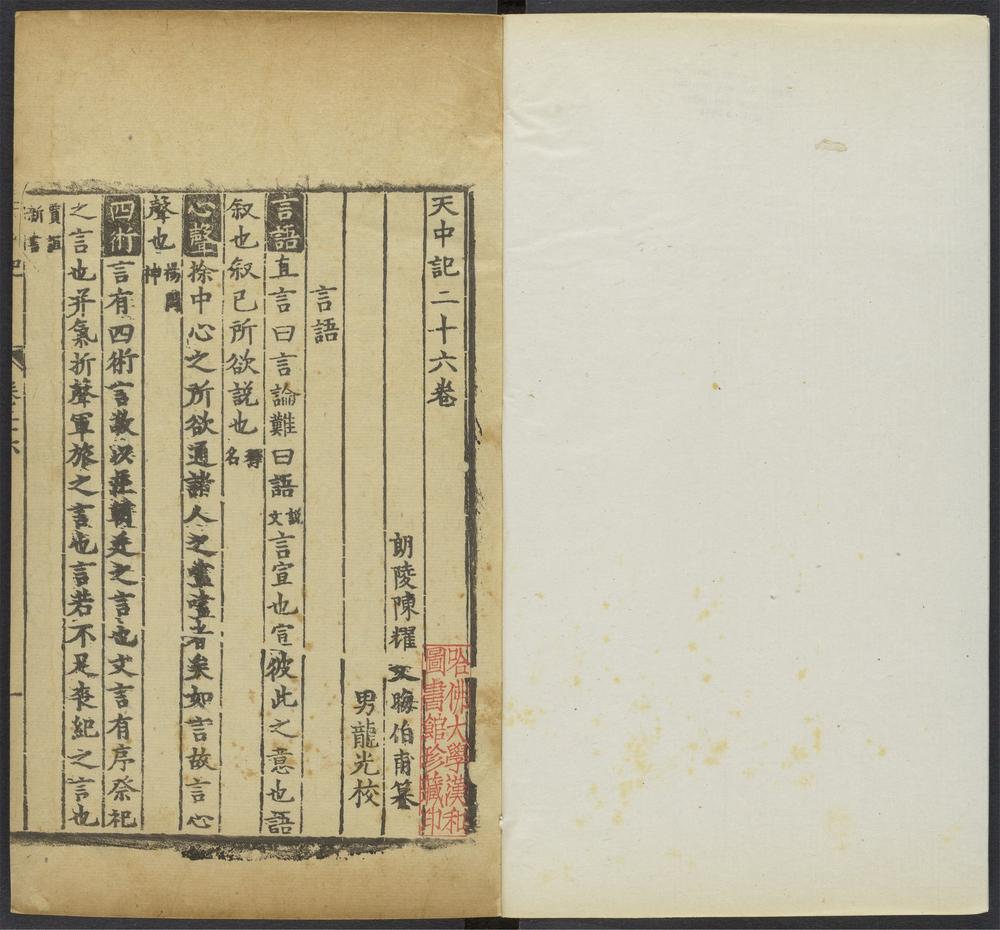 天中記二十六卷
朗陵陳耀文晦伯甫纂
男龍光校
言語
言語直言曰言論難曰語說文言宣也宣彼此之意也語
叙也叙己所欲說也釋名
心聲捈中心之所欲通諸人之嚍嚍者矣如言故言心
聲也揚問神
四術言有四術言敬以 朝廷之言也文言有序祭祀
之言也并氣折聲軍旅之言也言若不足喪紀之言也
賈誼新書
哈佛大學漢和
圖書館珍藏印